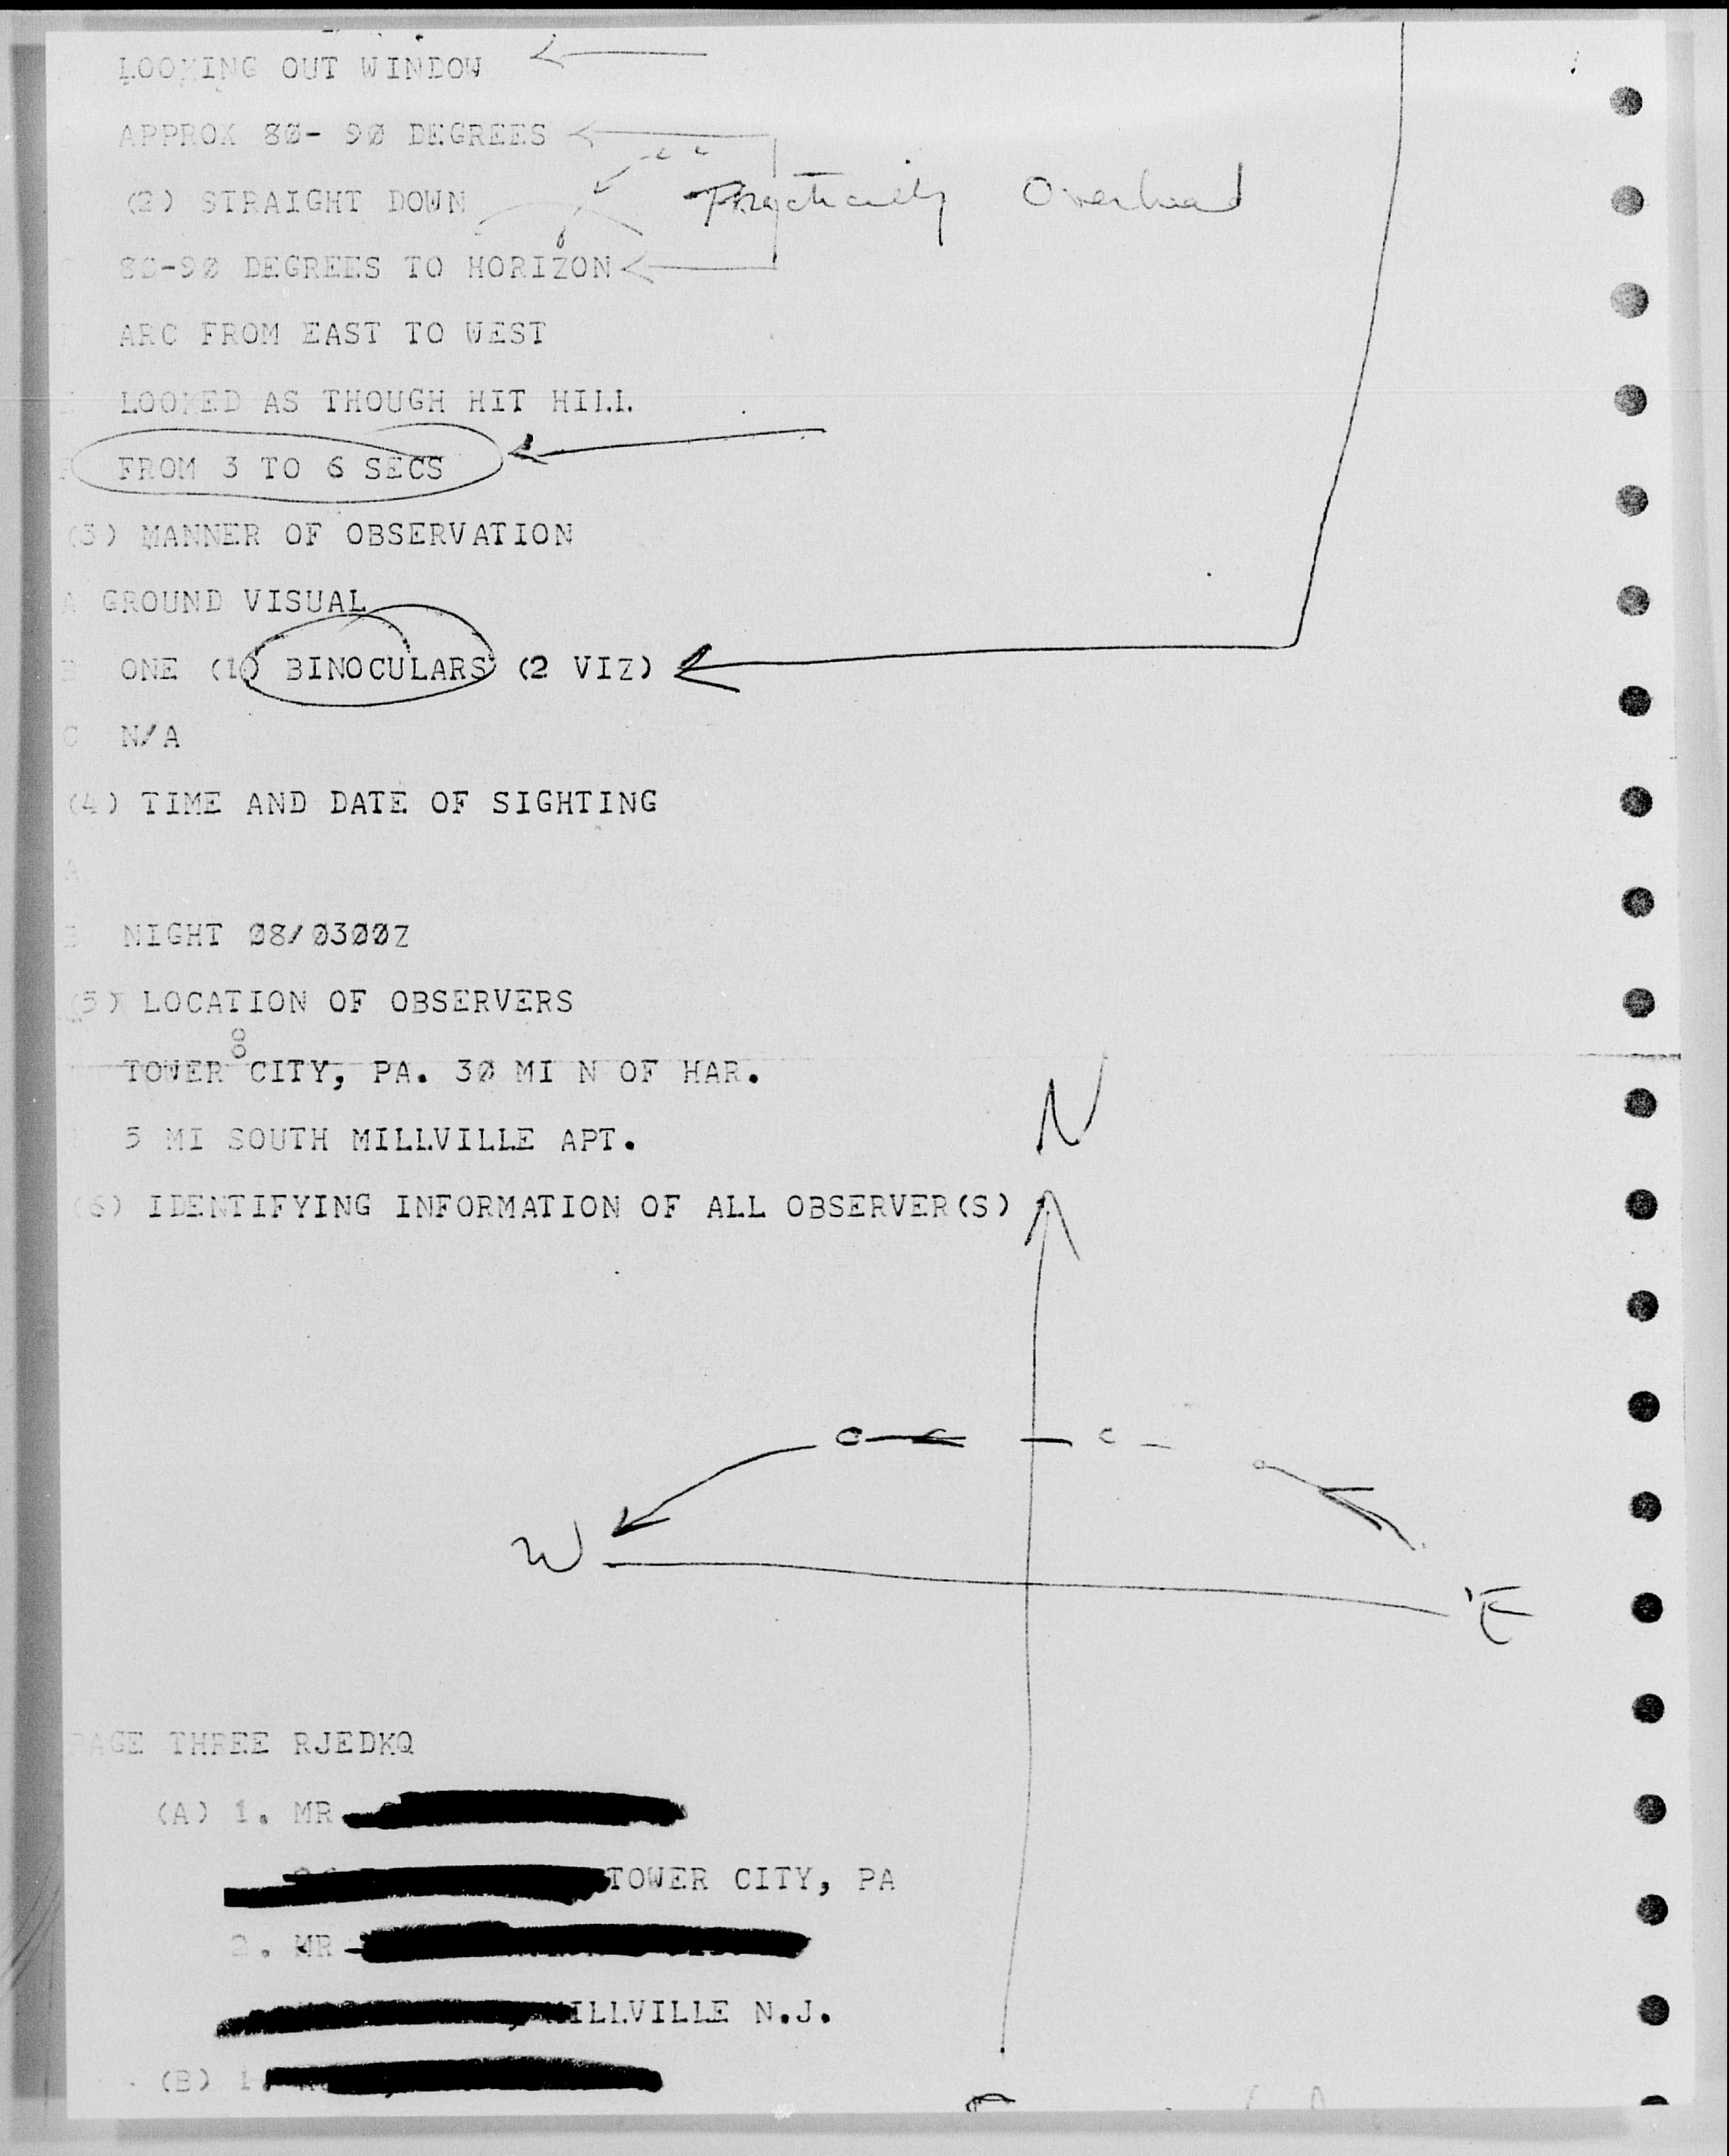 LOOKING OUT WINDOW
APPROX 80- 90 DEGREES
(2) STRAIGHT DOWN Practically Overhead
80-90 DEGREES TO HORIZON
ARC FROM EAST TO WEST
LOOKED AS THOUGH HIT HILL
FROM 3 TO 6 SECS
(3) MANNER OF OBSERVATION
A GROUND VISUAL
B ONE (1) BINOCULARS (2 VIZ)
C N/A
(4) TIME AND DATE OF SIGHTING
A
B NIGHT 08/0300Z
(5) LOCATION OF OBSERVERS
TOWER CITY, PA. 30 MI N OF HAR.
5 MI SOUTH MILLVILLE APT.
N
(6) IDENTIFYING INFORMATION OF ALL OBSERVER(S)
W
E
PAGE THREE RJEDKQ
(A) 1. MR
TOWER CITY, PA
2. MR
MILLVILLE N.J.
(B) 1.